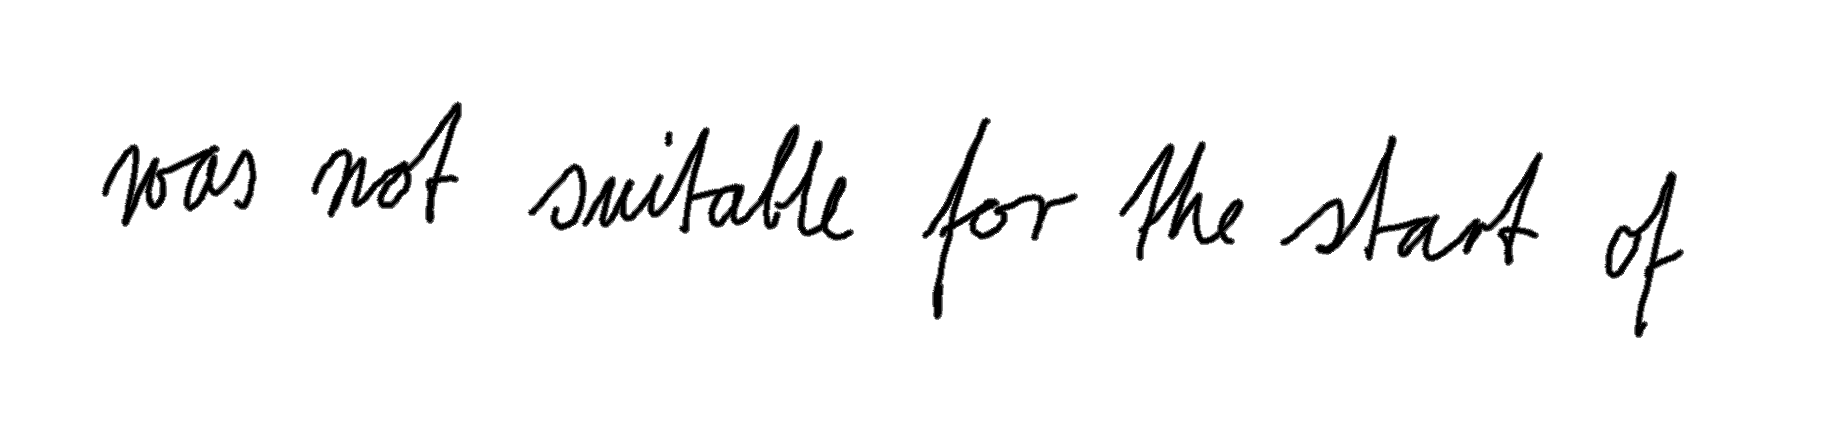 was not suitable for the start of